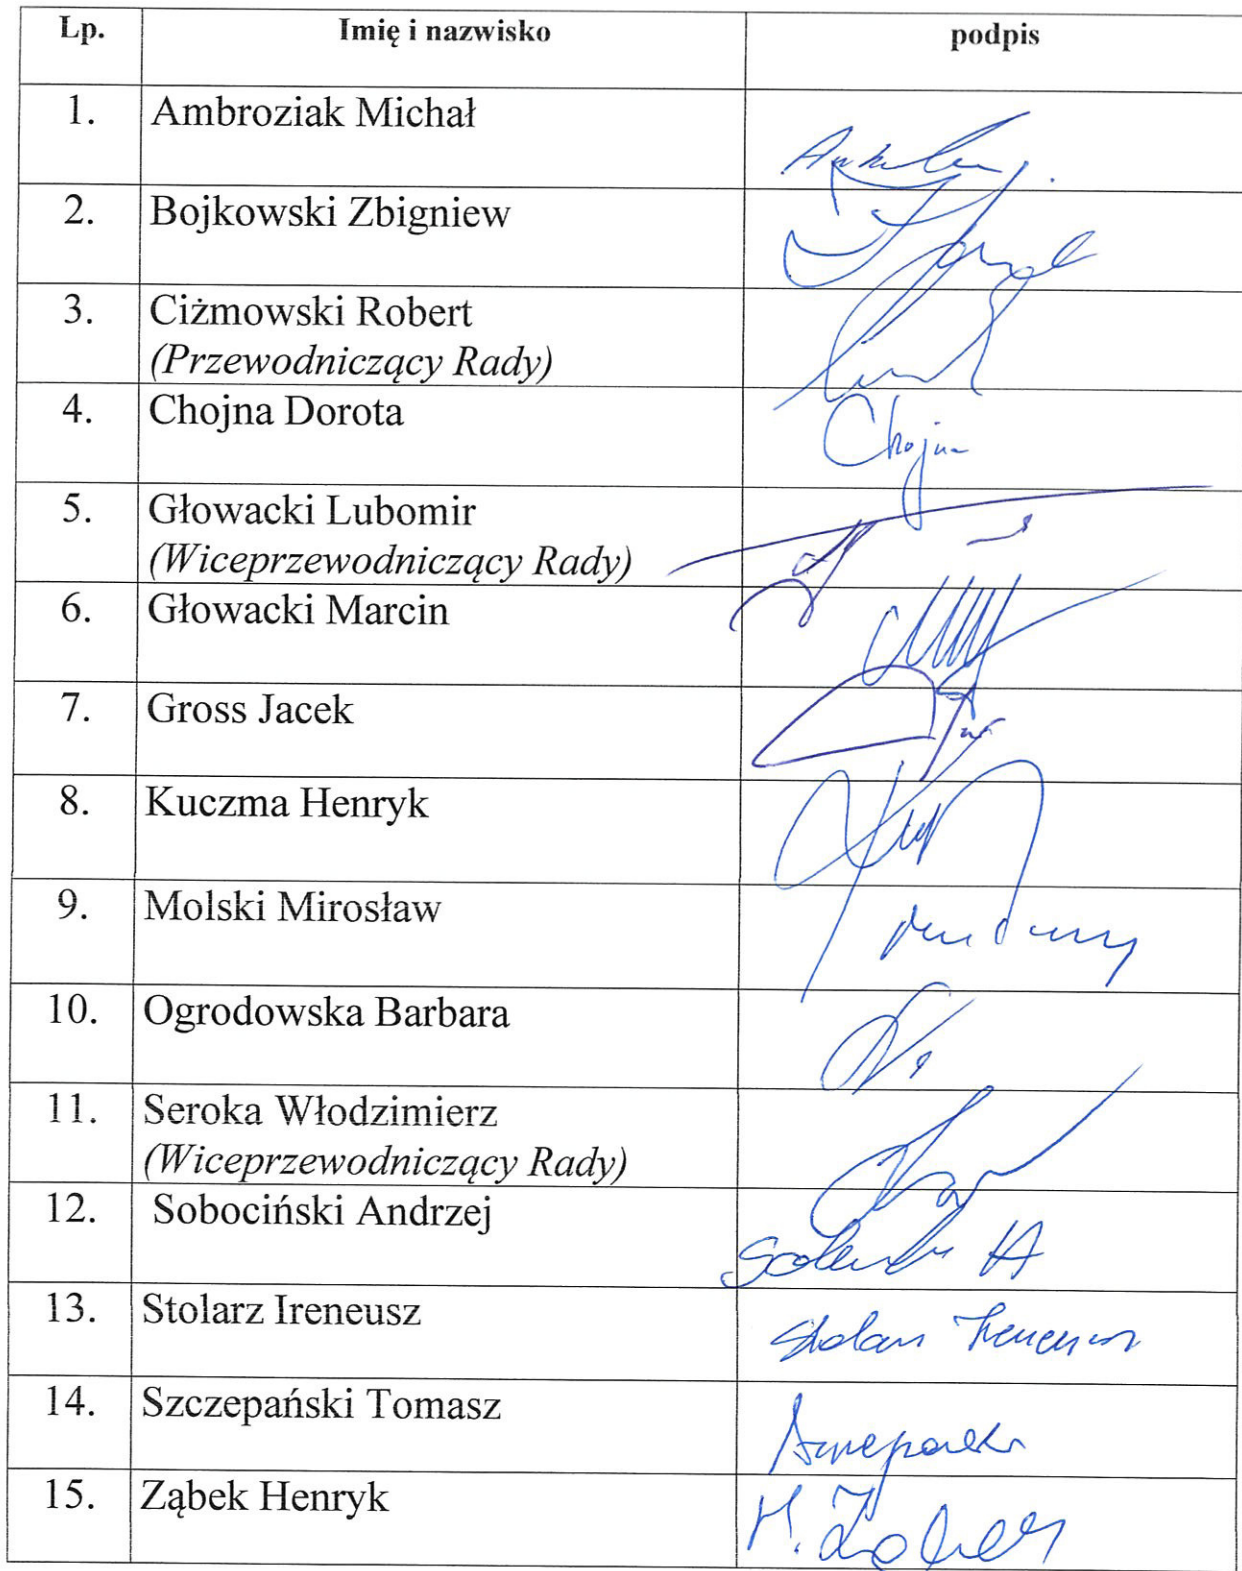 Lp. Imię i nazwisko podpis
1. Ambroziak Michał
2. Bojkowski Zbigniew
3. Ciżmowski Robert
(Przewodniczący Rady)
4. Chojna Dorota Chojna
5. Głowacki Lubomir
(Wiceprzewodniczący Rady)
6. Głowacki Marcin
7. Gross Jacek
8. Kuczma Henryk
9. Molski Mirosław
10. Ogrodowska Barbara
11. Seroka Włodzimierz
(Wiceprzewodniczący Rady)
12. Sobociński Andrzej
13. Stolarz Ireneusz Stolarz Ireneusz
14. Szczepański Tomasz
15. Ząbek Henryk H. Ząbek